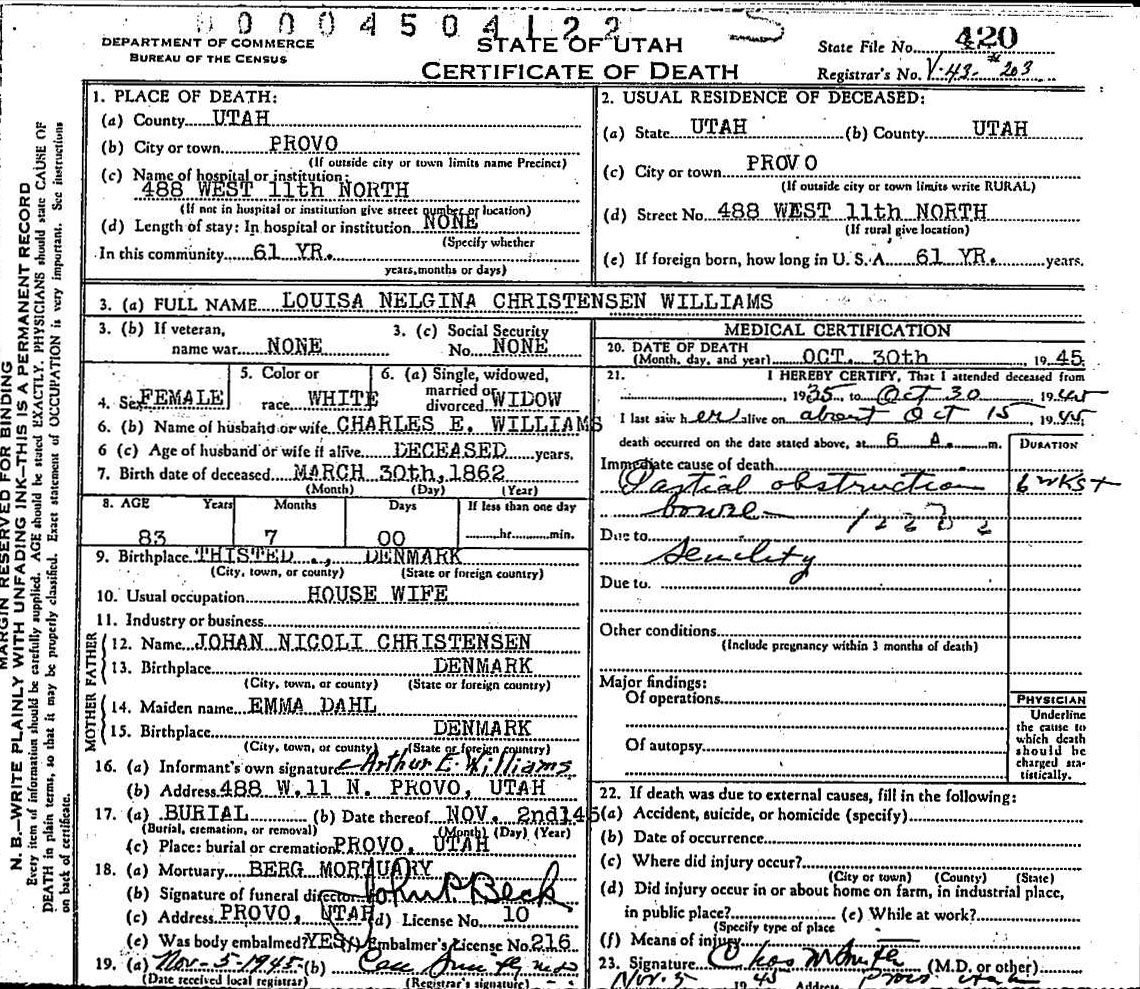 00004504122
DEPARTMENT OF COMMERCE
BUREAU OF THE CENSUS
STATE OF UTAH
CERTIFICATE OF DEATH
State File No. 420
Registrar's No. V-43- #203
MARGIN RESERVED FOR BINDING
N. B.—WRITE PLAINLY WITH UNFADING INK—THIS IS A PERMANENT RECORD
Every item of information should be carefully supplied. AGE should be stated EXACTLY. PHYSICIANS should state CAUSE OF
DEATH in plain terms, so that it may be properly classified. Exact statement of OCCUPATION is very important. See instructions
on back of certificate.
1. PLACE OF DEATH:
(a) County UTAH
(b) City or town PROVO
(If outside city or town limits name Precinct)
(c) Name of hospital or institution:
488 WEST 11th NORTH
(If not in hospital or institution give street number or location)
(d) Length of stay: In hospital or institution NONE
(Specify whether
In this community 61 YR.
years, months or days)
2. USUAL RESIDENCE OF DECEASED:
(a) State UTAH (b) County UTAH
(c) City or town PROVO
(If outside city or town limits write RURAL)
(d) Street No. 488 WEST 11th NORTH
(If rural give location)
(e) If foreign born, how long in U. S. A 61 YR. years.
3. (a) FULL NAME LOUISA NELGINA CHRISTENSEN WILLIAMS
3. (b) If veteran,
name war NONE
3. (c) Social Security
No. NONE
4. Sex FEMALE
5. Color or
race WHITE
6. (a) Single, widowed,
married or
divorced WIDOW
6. (b) Name of husband or wife CHARLES E. WILLIAMS
6 (c) Age of husband or wife if alive DECEASED years.
7. Birth date of deceased MARCH 30th, 1862
(Month) (Day) (Year)
8. AGE Years Months Days If less than one day
83 7 00 hr. min.
9. Birthplace THISTED., DENMARK
(City, town, or county) (State or foreign country)
10. Usual occupation HOUSE WIFE
11. Industry or business
FATHER
12. Name JOHAN NICOLI CHRISTENSEN
13. Birthplace DENMARK
(City, town, or county) (State or foreign country)
MOTHER
14. Maiden name EMMA DAHL
15. Birthplace DENMARK
(City, town, or county) (State or foreign country)
16. (a) Informant's own signature Arthur E. Williams
(b) Address 488 W.11 N. PROVO, UTAH
17. (a) BURIAL (b) Date thereof NOV. 2nd 145
(Burial, cremation, or removal) (Month) (Day) (Year)
(c) Place: burial or cremation PROVO, UTAH
18. (a) Mortuary BERG MORTUARY
(b) Signature of funeral director John P. Beck
(c) Address PROVO, UTAH (d) License No. 10
(e) Was body embalmed? YES (f) Embalmer's License No. 216
19. (a) Nov-5-1945 (b)
(Date received local registrar) (Registrar's signature)
MEDICAL CERTIFICATION
20. DATE OF DEATH
(Month, day, and year) OCT. 30th, 1945
21. I HEREBY CERTIFY, That I attended deceased from
, 1935, to Oct 30 1945
I last saw her alive on about Oct 15 1945
death occurred on the date stated above, at 6 A. m.
DURATION
Immediate cause of death
Partial obstruction 6 wks+
bowel
Due to
Senility
Due to.
Other conditions
(Include pregnancy within 3 months of death)
Major findings:
Of operations
Of autopsy
PHYSICIAN
Underline
the cause to
which death
should be
charged sta-
tistically.
22. If death was due to external causes, fill in the following:
(a) Accident, suicide, or homicide (specify)
(b) Date of occurrence
(c) Where did injury occur?
(City or town) (County) (State)
(d) Did injury occur in or about home on farm, in industrial place,
in public place? (e) While at work?
(Specify type of place
(f) Means of injury
23. Signature Chas M Smith (M.D. or other)
Nov. 5 1945 Address Provo Utah